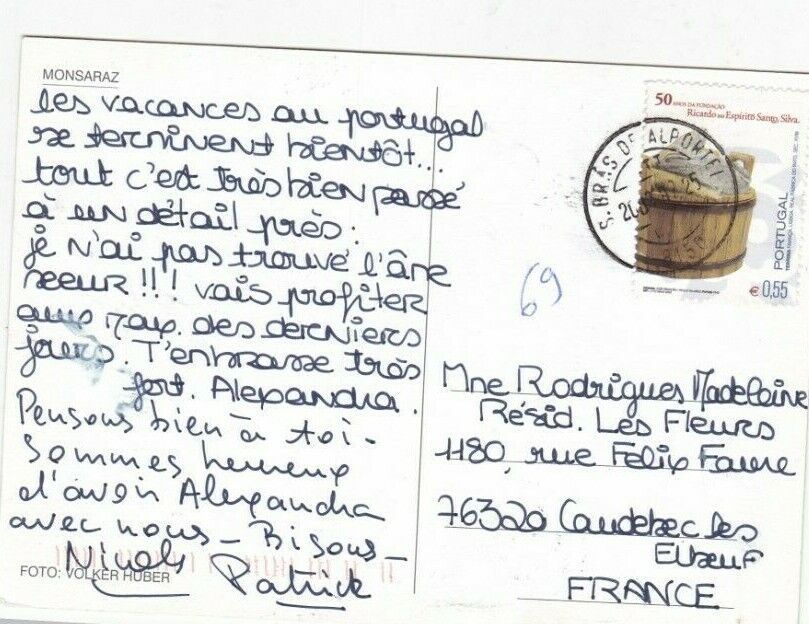 MONSARAZ
les vacances au portugal
se terminent bientôt...
tout c'est très bien passé
à un détail près :
je n'ai pas trouvé l'âne
soeur !!! vais profiter
au max des derniers
jours. T'embrasse très
fort. Alexandra.
Pensons bien à toi -
Sommes heureux
d'avoir Alexandra
avec nous - Bisous -
Nicole Patrick
FOTO: VOLKER HUBER
50 ANOS DA FUNDAÇÃO
Ricardo do Espírito Santo Silva.
S. BRÁS DE ALPORTEL
PORTUGAL
€ 0,55
69
Mme Rodrigues Madeleine
Résid. Les Fleurs
1180, rue Felix Faure
76320 Caudebec les
Elbeuf
FRANCE